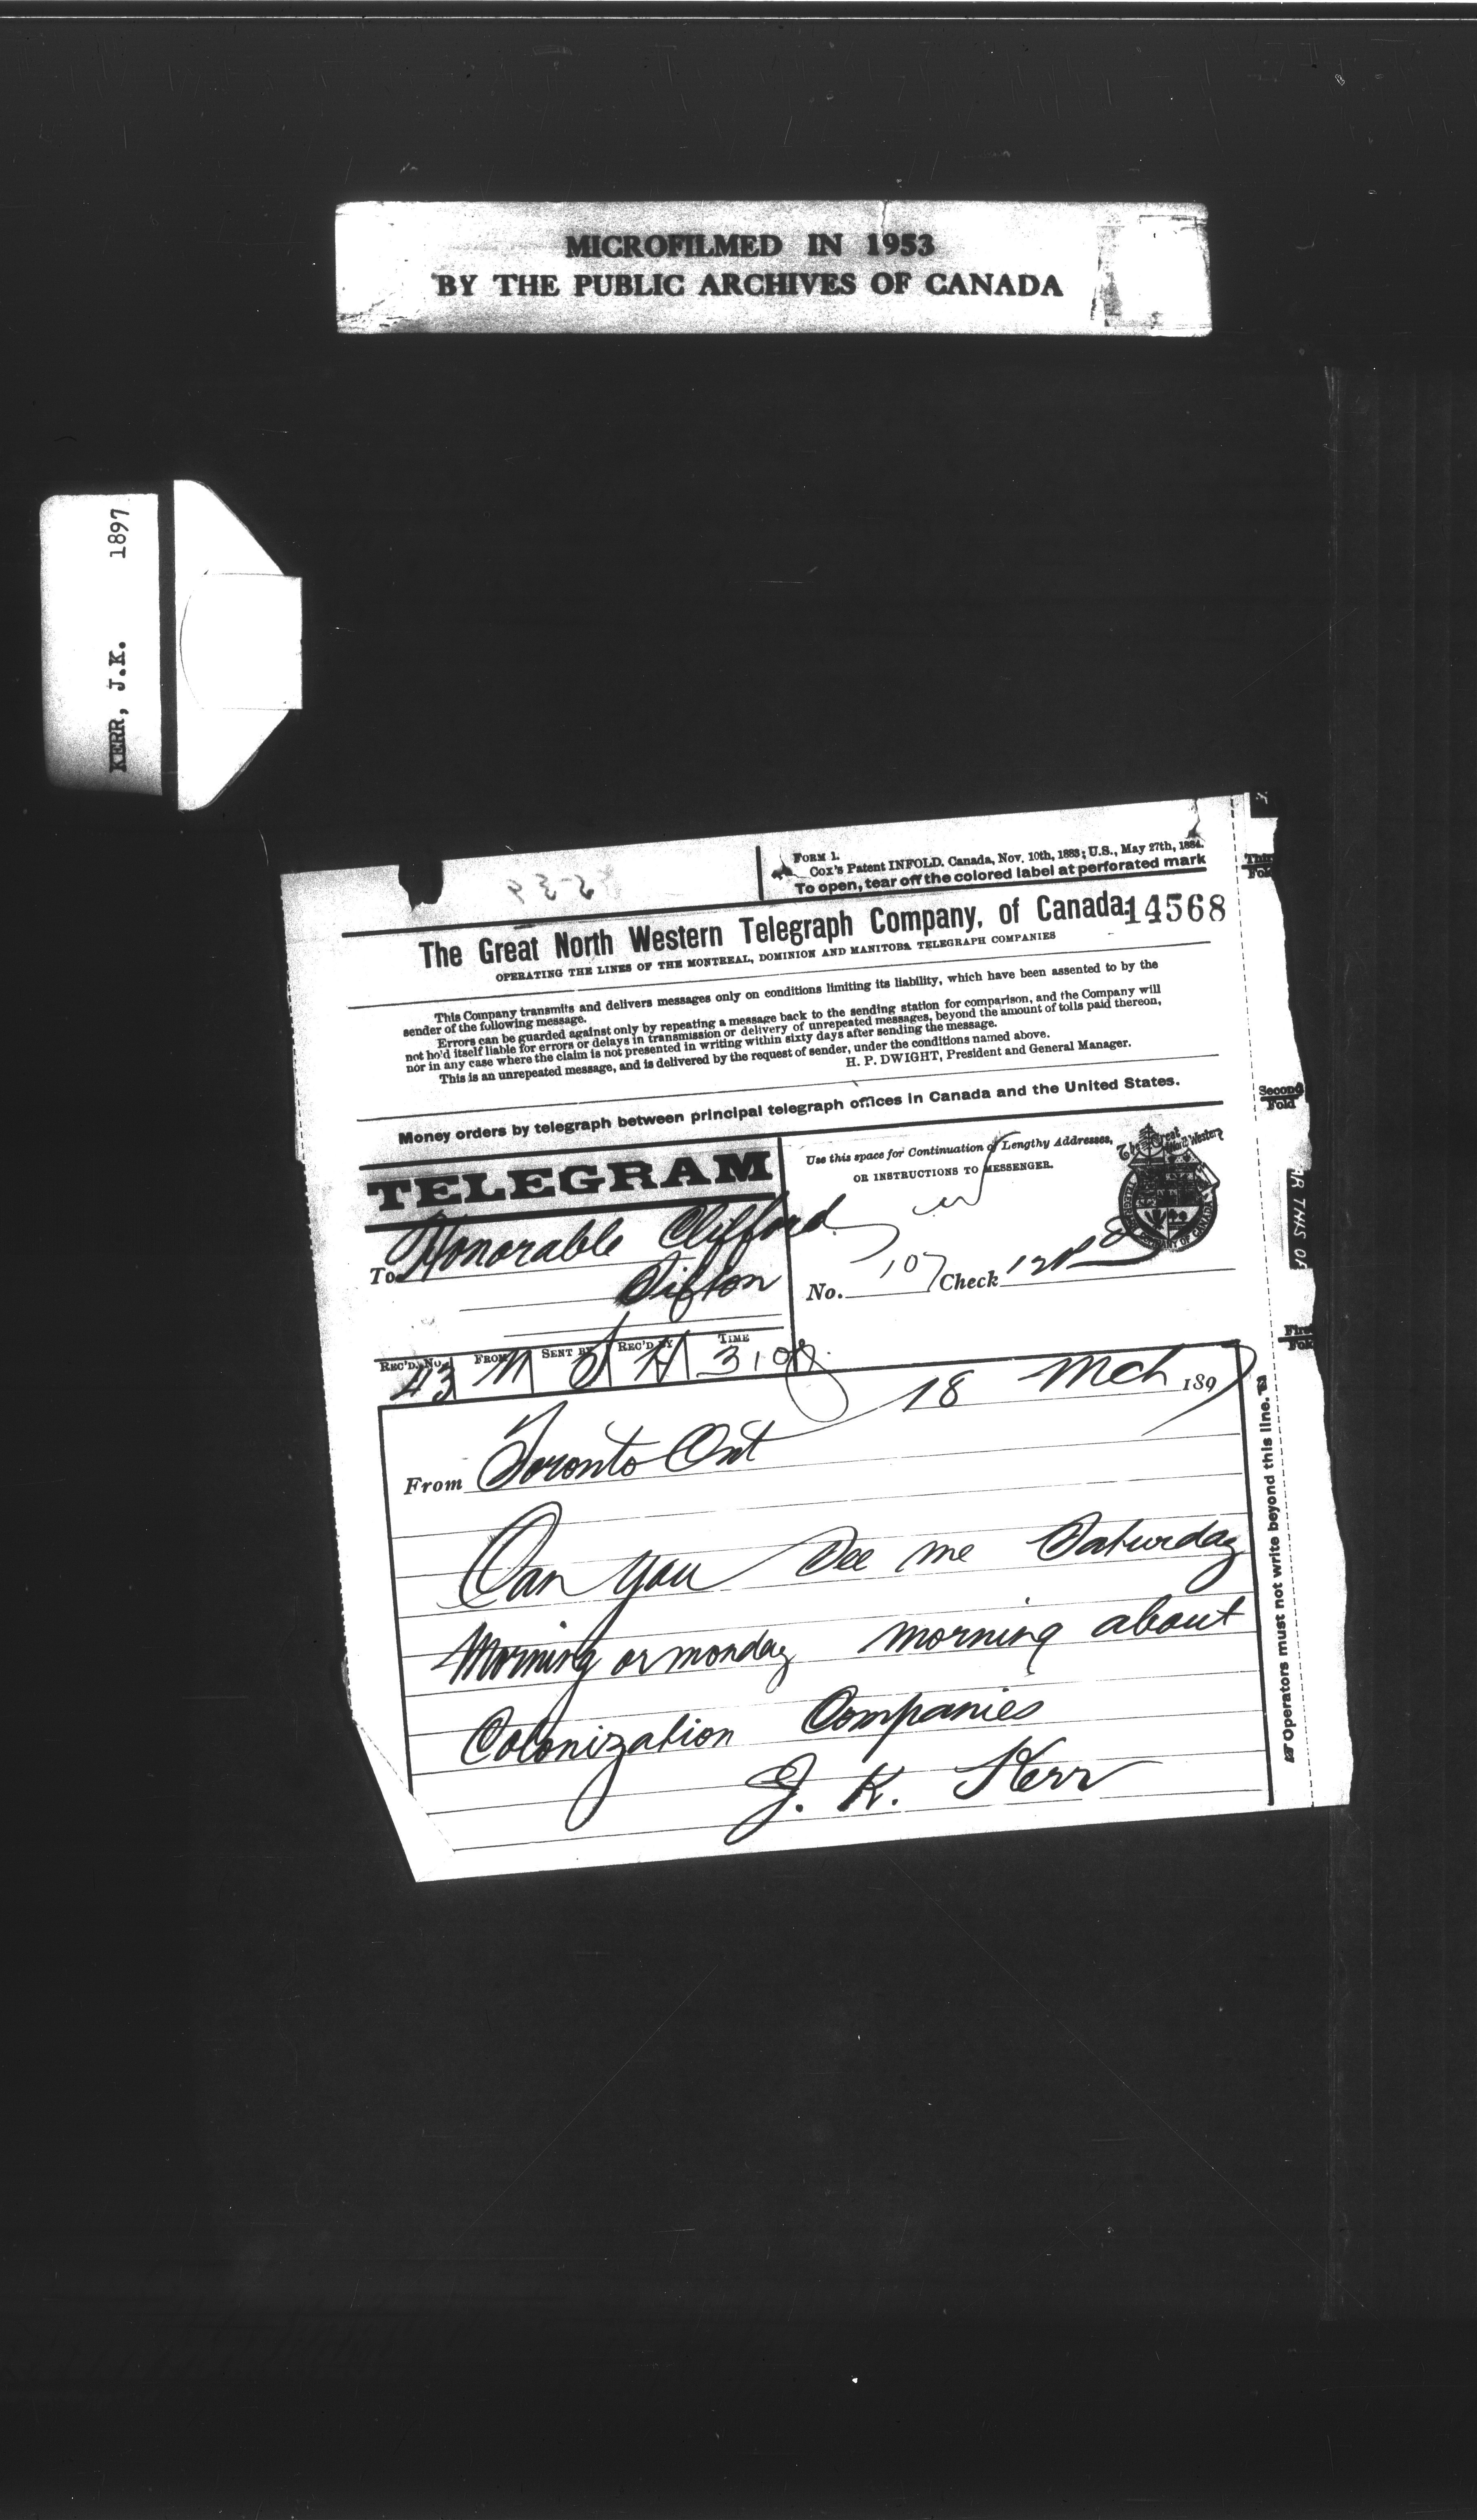 MICROFILMED IN 1953
BY THE PUBLIC ARCHIVES OF CANADA
KERR, J.K. 1897
FORM 1.
Cox's Patent INFOLD. Canada, Nov. 10th, 1883; U.S., May 27th, 1884.
To open, tear off the colored label at perforated mark
The Great North Western Telegraph Company, of Canada.
14568
OPERATING THE LINES OF THE MONTREAL, DOMINION AND MANITOBA TELEGRAPH COMPANIES
This Company transmits and delivers messages only on conditions limiting its liability, which have been assented to by the
sender of the following message.
Errors can be guarded against only by repeating a message back to the sending station for comparison, and the Company will
not hold itself liable for errors or delays in transmission or delivery of unrepeated messages, beyond the amount of tolls paid thereon,
nor in any case where the claim is not presented in writing within sixty days after sending the message.
This is an unrepeated message, and is delivered by the request of sender, under the conditions named above.
H. P. DWIGHT, President and General Manager.
Money orders by telegraph between principal telegraph offices in Canada and the United States.
TELEGRAM
Use this space for Continuation of Lengthy Addresses,
OR INSTRUCTIONS TO MESSENGER.
The Great North Western
To Honorable Clifford
Sifton
No. 107 Check
REC'D, No. FROM SENT BY REC'D BY TIME
43 M
18 Mch 1897
From Toronto Ont
Can you See me Saturday
Morning or monday morning about
Colonization Companies
J. K. Kerr
Operators must not write beyond this line.
Third
Fold
Second
Fold
First
Fold